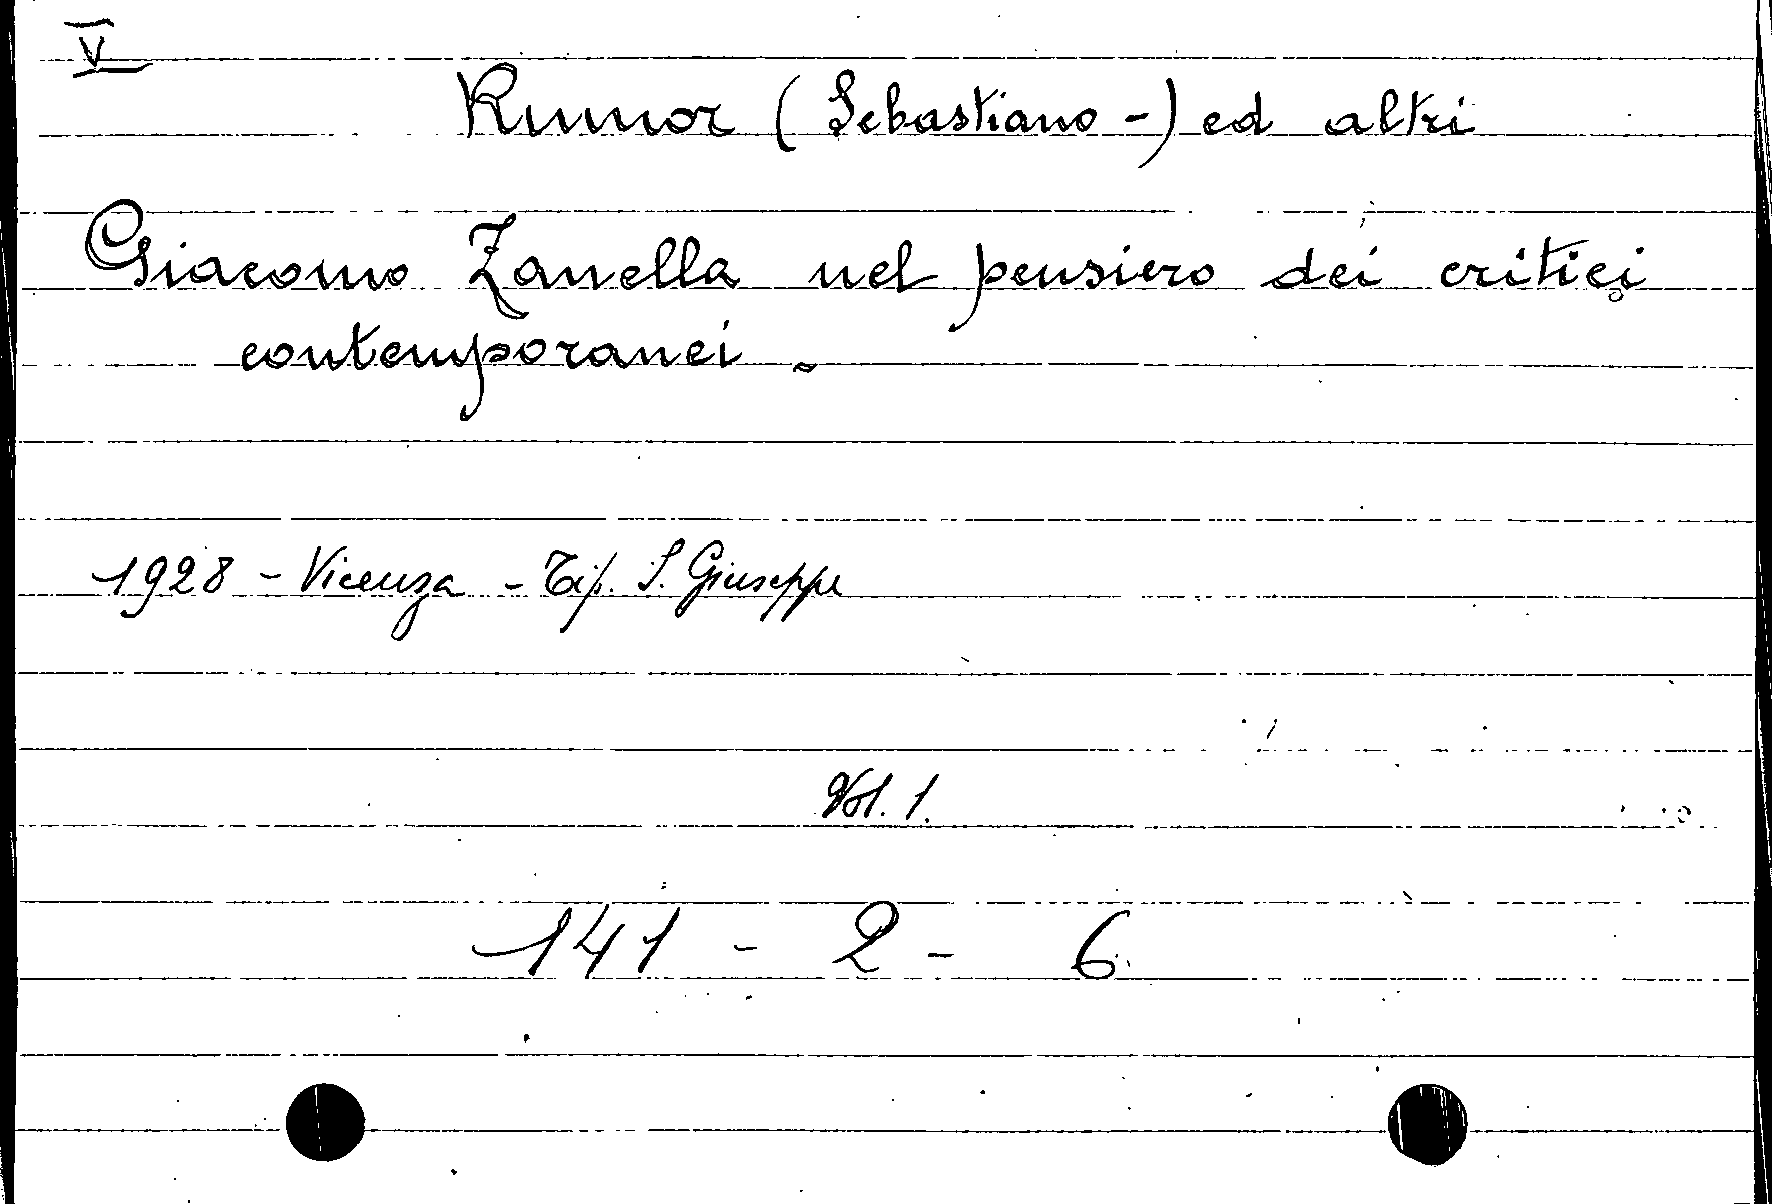 V
Rumor (Sebastiano -) ed altri
Giacomo Zanella nel pensiero dei critici
contemporanei.
1928 - Vicenza - Tip. S. Giuseppe
Vol. 1.
141 - 2 - 6